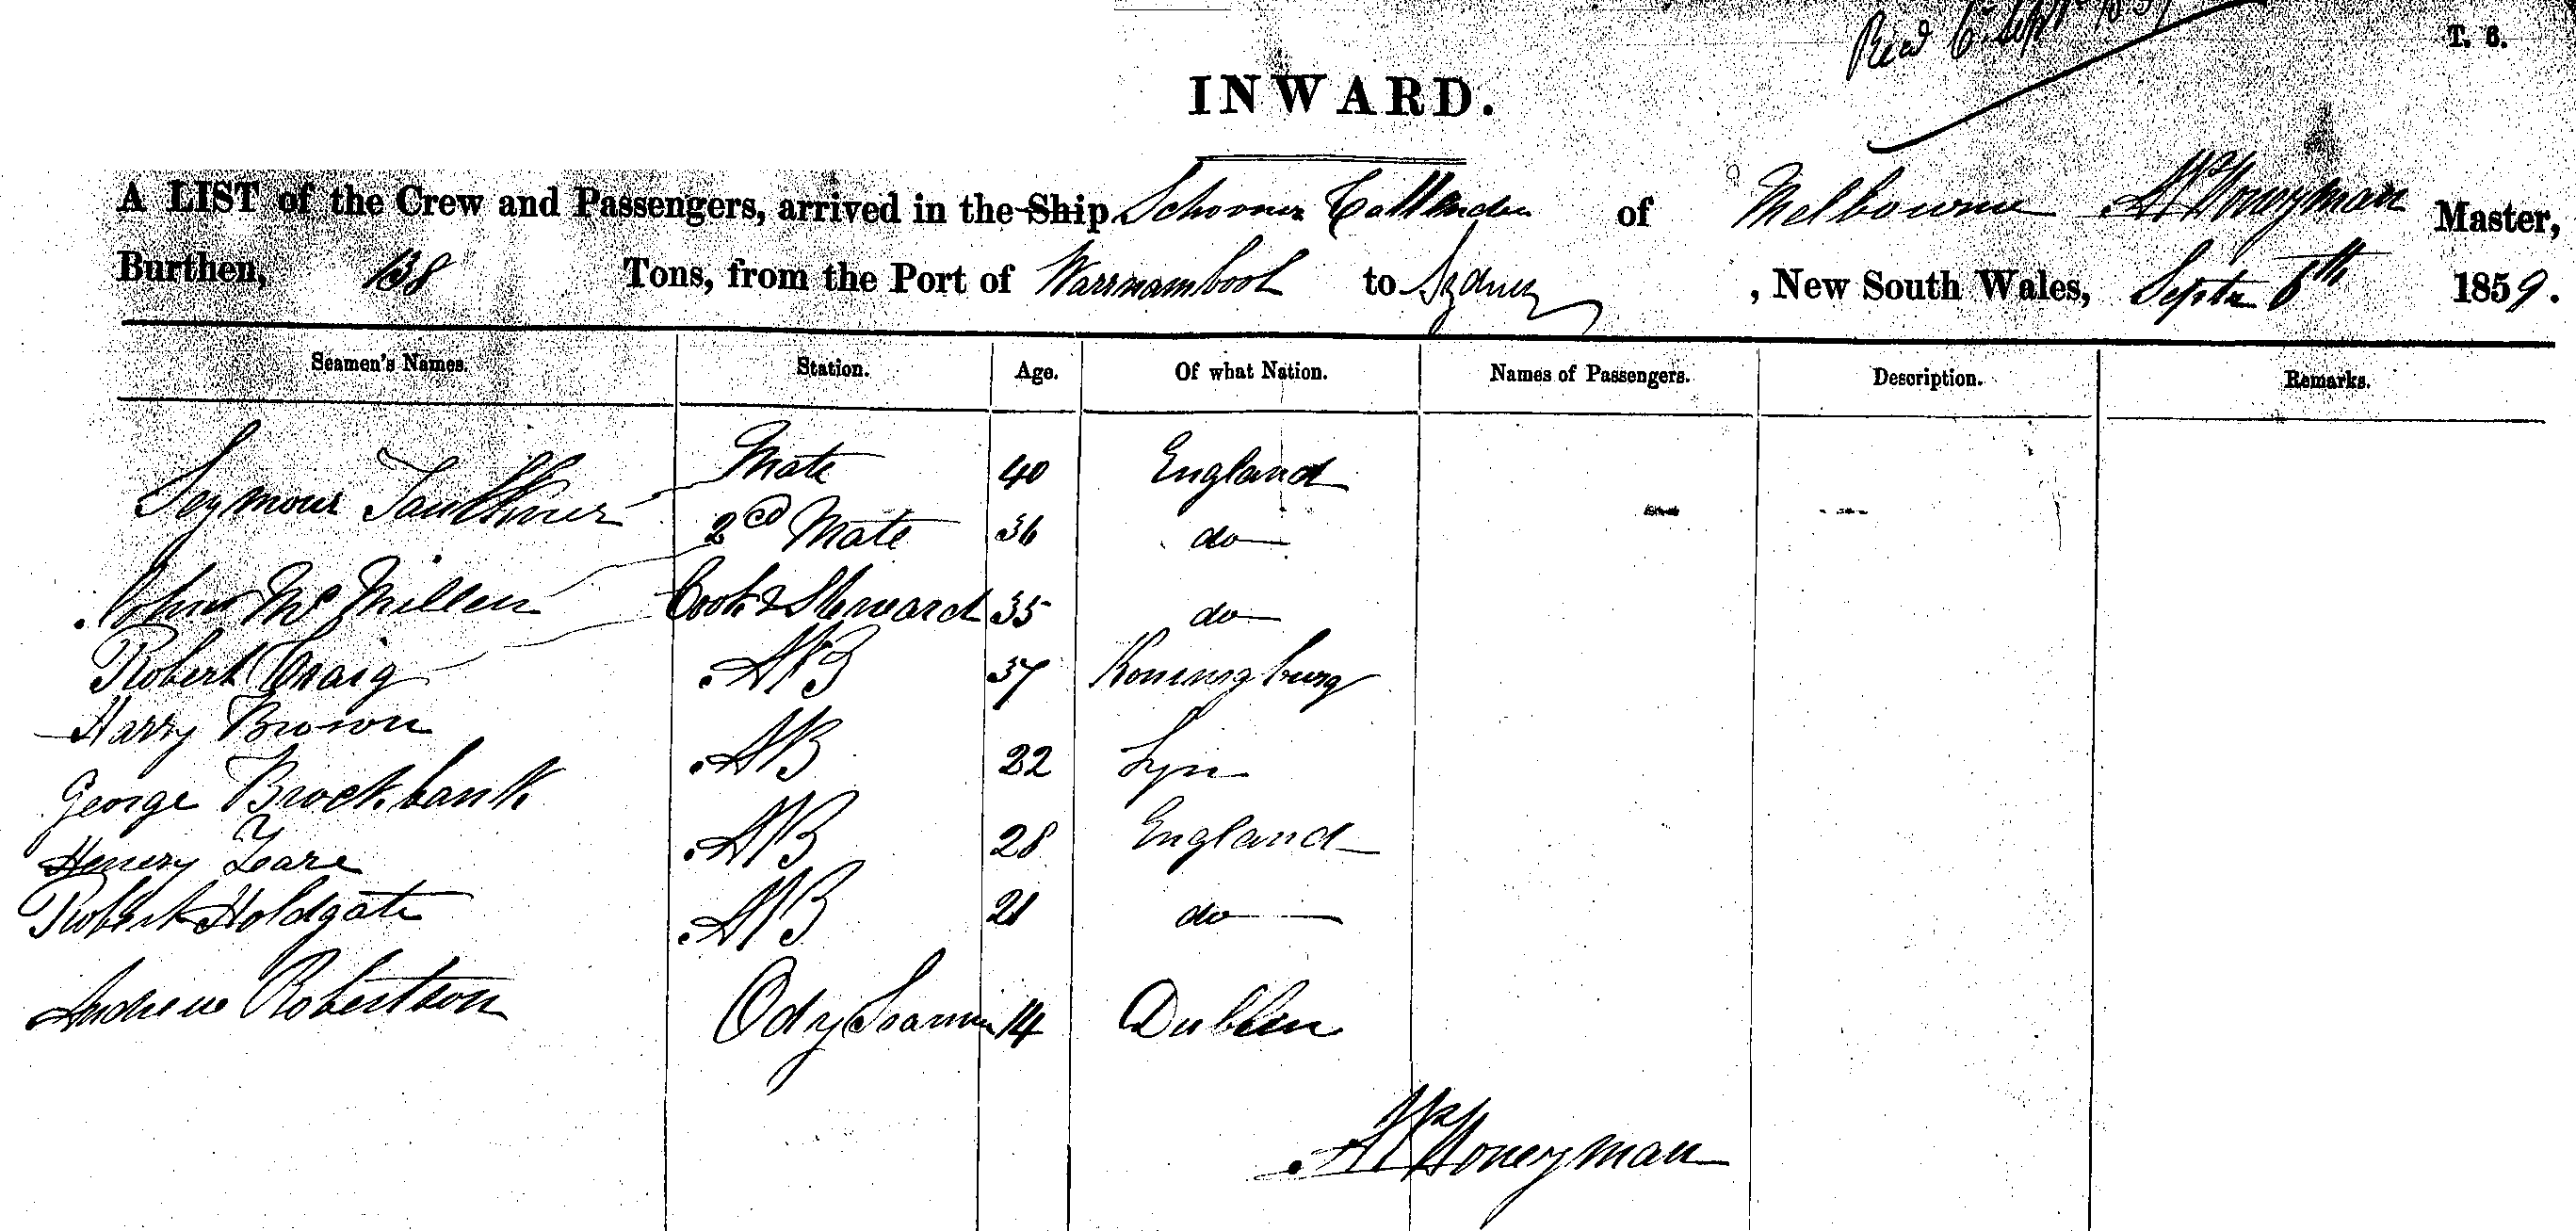 Recd 6 Sept 1859
T. 6.
INWARD.
A LIST of the Crew and Passengers, arrived in the Ship Schooner of Melbourne Honeyman Master,
Burthen, 138 Tons, from the Port of Warrnambool to Sydney, New South Wales, Septr 6th 1859.
Seamen's Names. Station. Age. Of what Nation. Names of Passengers. Description. Remarks.
Seymour Faulkner Mate 40 England
John McMillen 2cd Mate 36 do
Robert Craig Cook & Steward 35 do
Harry Brown AB 37 Koningburg
George Brockbank AB 22 Lyn
Henery Teare AB 28 England
Robert Holdgate AB 21 do
Andrew Robertson Ody Seaman 14 Dublin
Honeyman